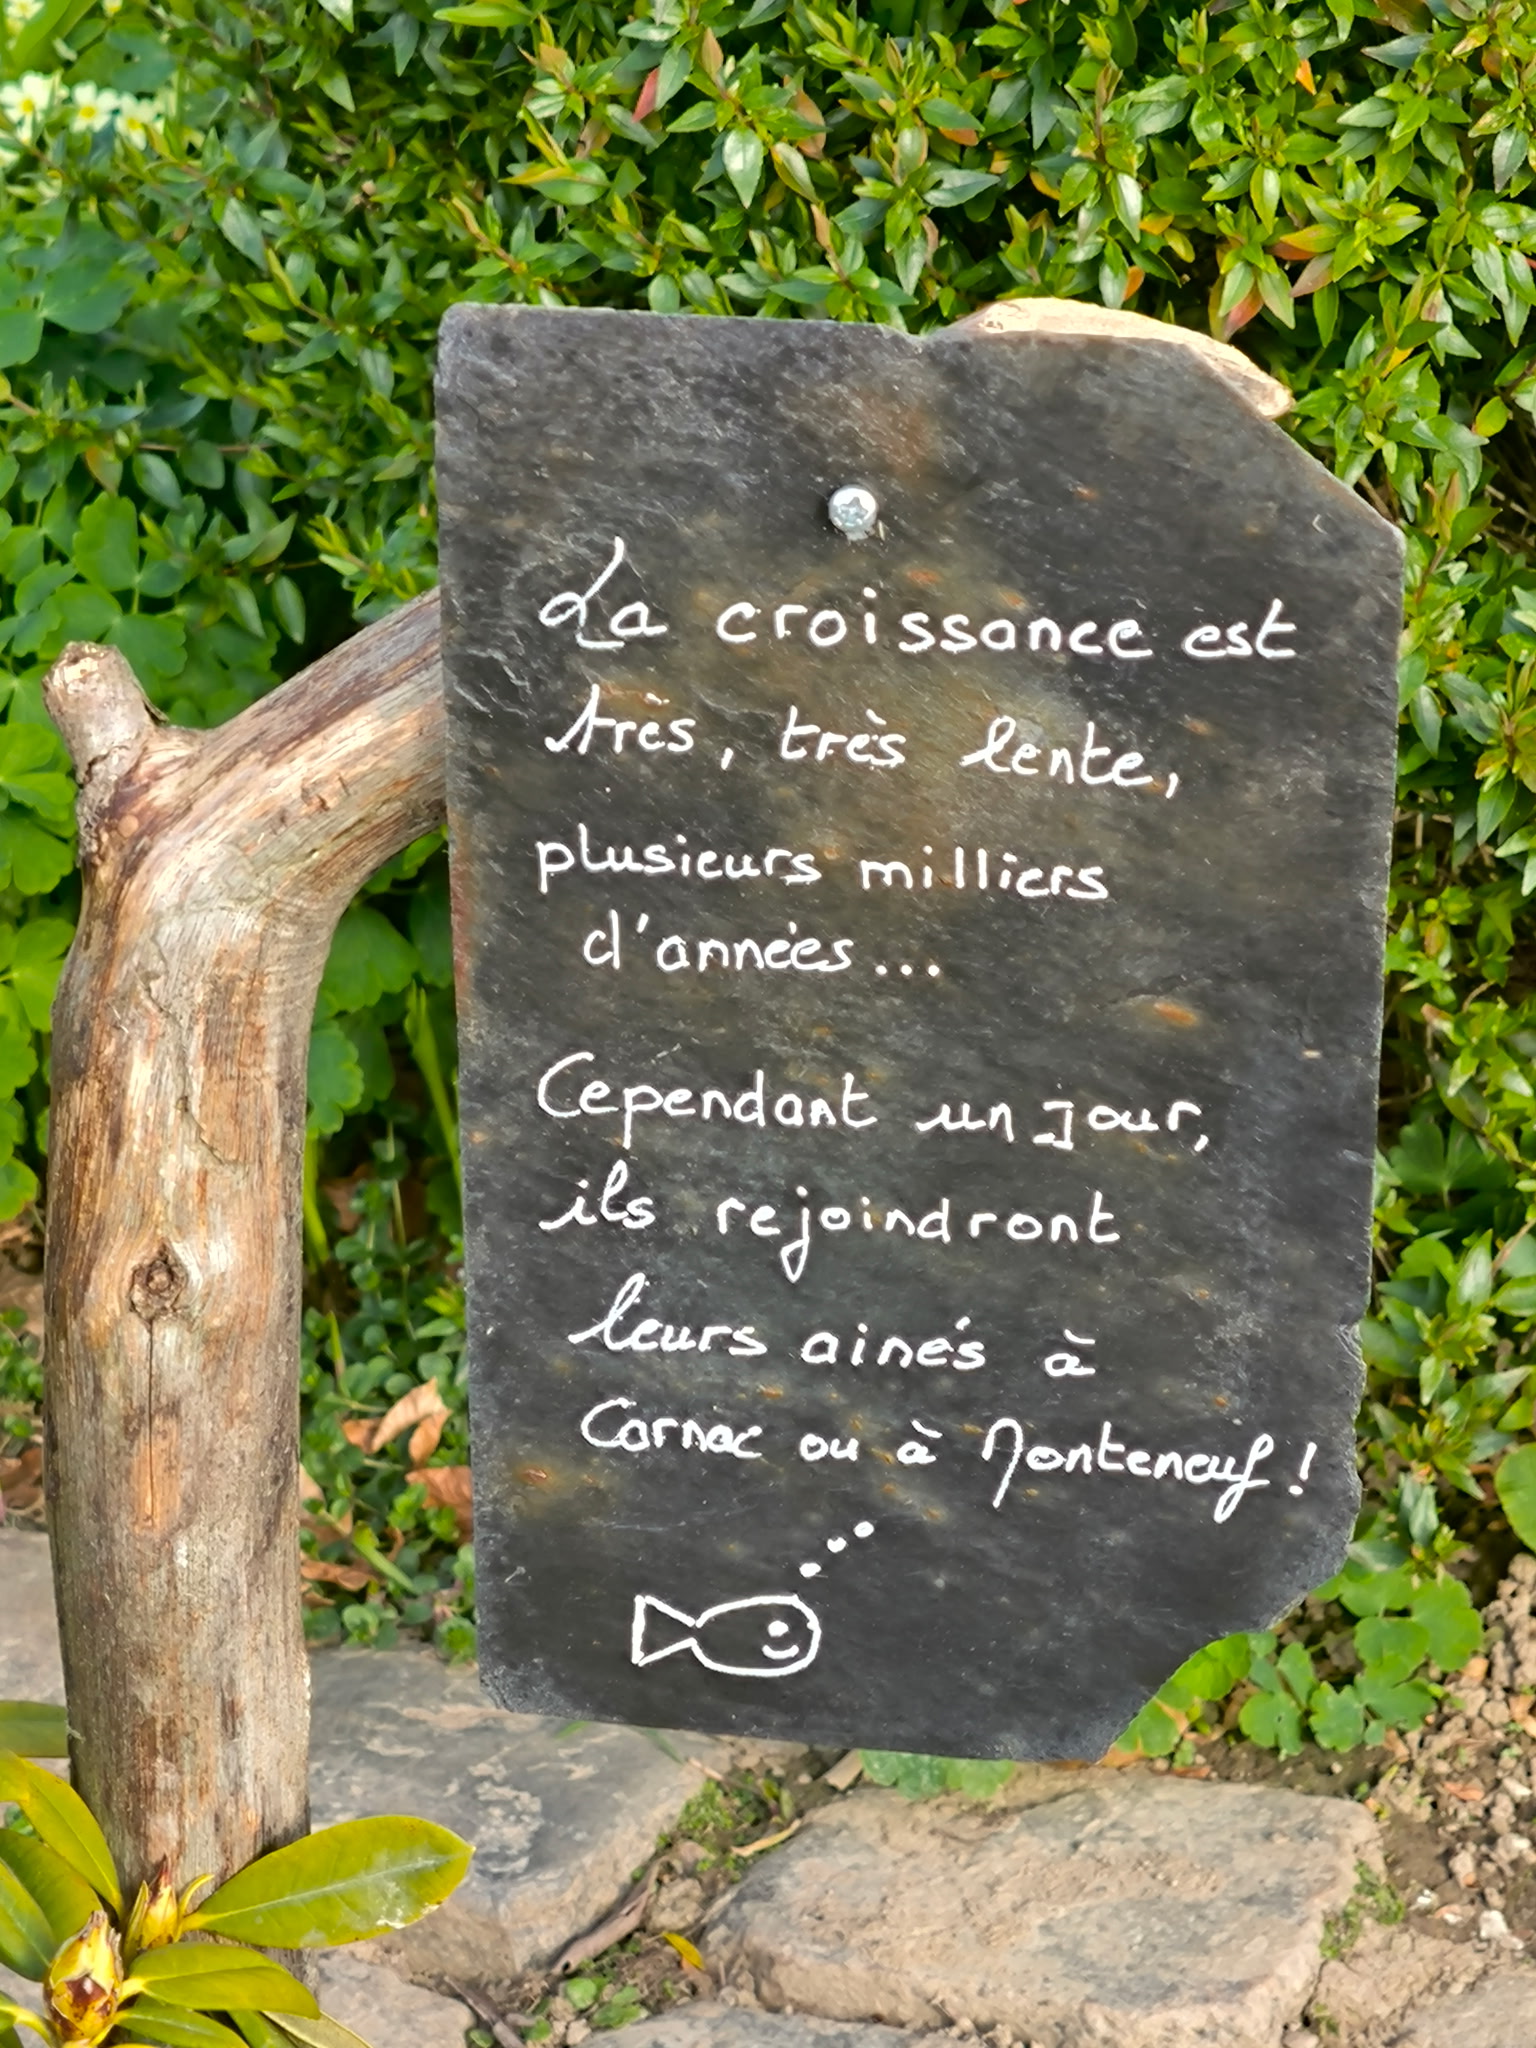 La croissance est
très, très lente,
plusieurs milliers
d'années...
Cependant un jour,
ils rejoindront
leurs ainés à
Carnac ou à Monteneuf !